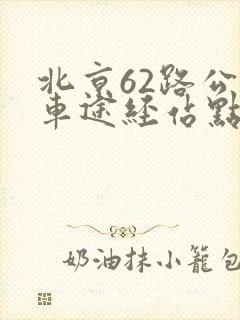 北京62路公
車途經佔點
奶油抹小籠包